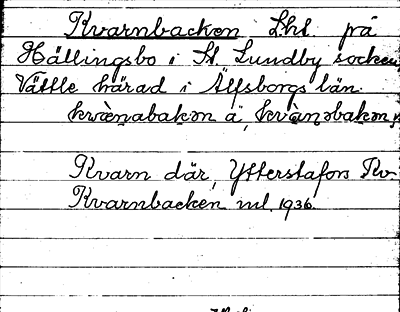 Kvarnbacken Lht. på
Hällingsbo i St. Lundby socken,
Vättle härad i Älfsborgs län.
kvànabakən ä, kvànəbakən,

Kvarn där, Ytterstafors Kv.
Kvarnbacken ml. 1936.